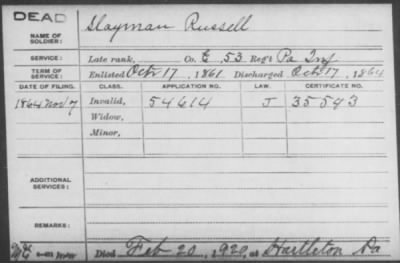 DEAD
NAME OF SOLDIER: Slayman Russell
SERVICE: Late rank, Co. E 53 Reg't Pa Inf
TERM OF SERVICE: Enlisted Octr 17, 1861 Discharged Oct 17, 1864
DATE OF FILING. CLASS. APPLICATION NO. LAW. CERTIFICATE NO.
1864 Nov 7 Invalid, 54614 J 35593
Widow,
Minor,
ADDITIONAL SERVICES:
REMARKS:
Died Feb 20, 1920, at Hartleton Pa